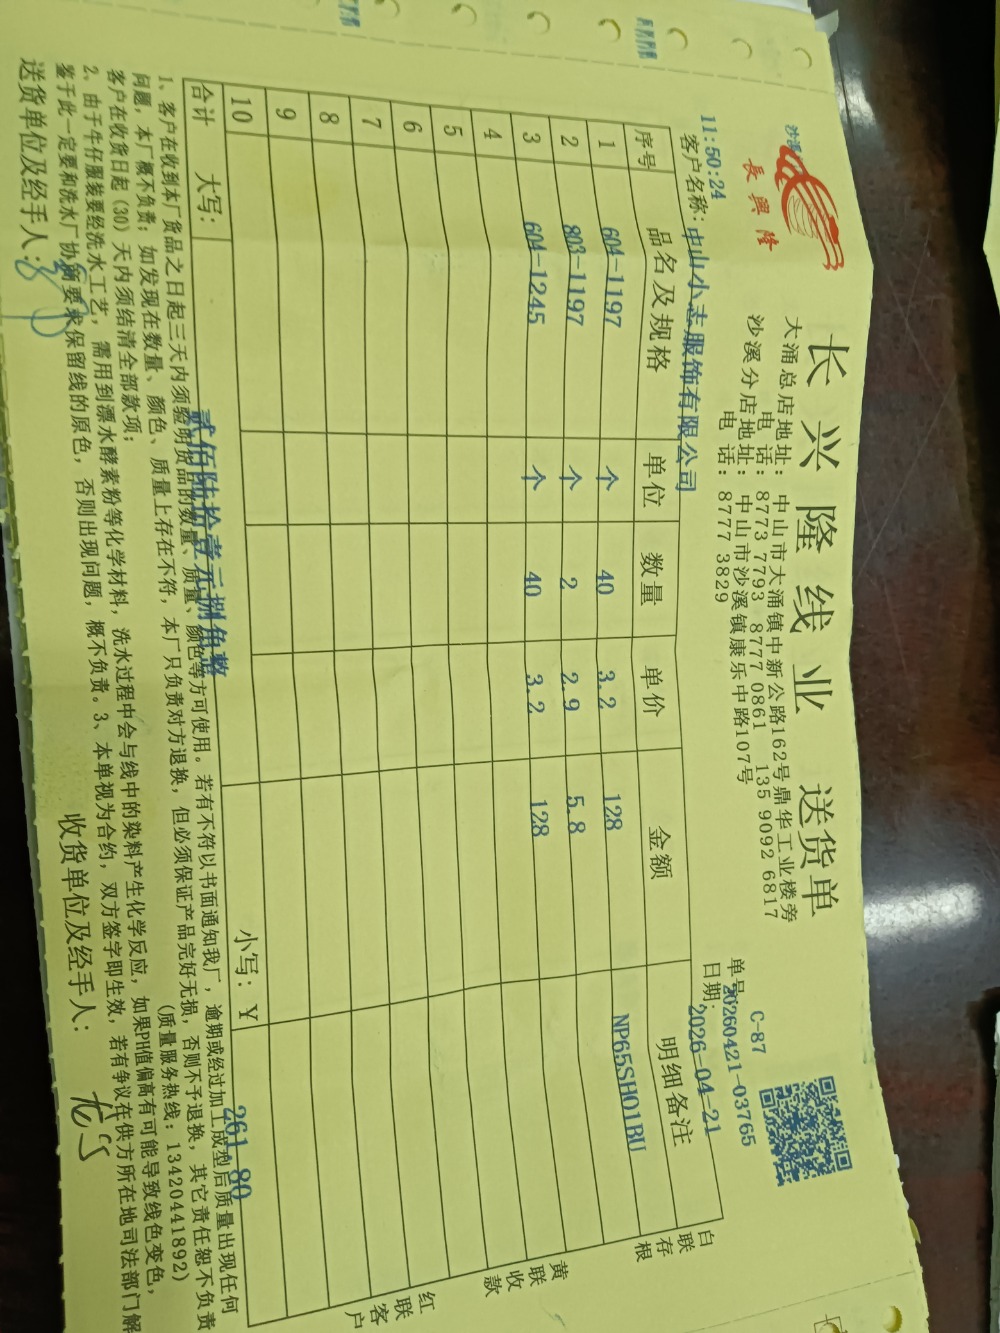 長興隆
长兴隆线业 送货单
大涌总店地址：中山市大涌镇中新公路162号鼎华工业楼旁
电 话：8773 7793 8777 0861 135 9092 6817
沙溪分店地址：中山市沙溪镇康乐中路107号
电 话：8777 3829
C-87
单号:20260421-03765
11:50:24
日期:2026-04-21
客户名称:中山小志服饰有限公司
序号 品名及规格 单位 数量 单价 金额 明细备注
1 604-1197 个 40 3.2 128 NP65SH01BU
2 803-1197 个 2 2.9 5.8
3 604-1245 个 40 3.2 128
4
5
6
7
8
9
10
合计 大写：贰佰陆拾壹元捌角整 小写：Y 261.80
白联存根
黄联收款
红联客户
1、客户在收到本厂货品之日起三天内须验明货品的数量、质量、颜色等方可使用。若有不符以书面通知我厂，逾期或经过加工成型后质量出现任何
问题，本厂概不负责；如发现在数量、颜色、质量上存在不符，本厂只负责对方退换，但必须保证产品完好无损，否则不予退换，其它责任恕不负责
客户在收货日起（30）天内须结清全部款项； （质量服务热线：13420441892）
2、由于牛仔服装要经洗水工艺，需用到漂水酵素粉等化学材料，洗水过程中会与线中的染料产生化学反应，如果PH值偏高有可能导致线色变色，
鉴于此一定要和洗水厂协商要求保留线的原色，否则出现问题，概不负责。3、本单视为合约，双方签字即生效，若有争议在供方所在地司法部门解
送货单位及经手人： 收货单位及经手人：